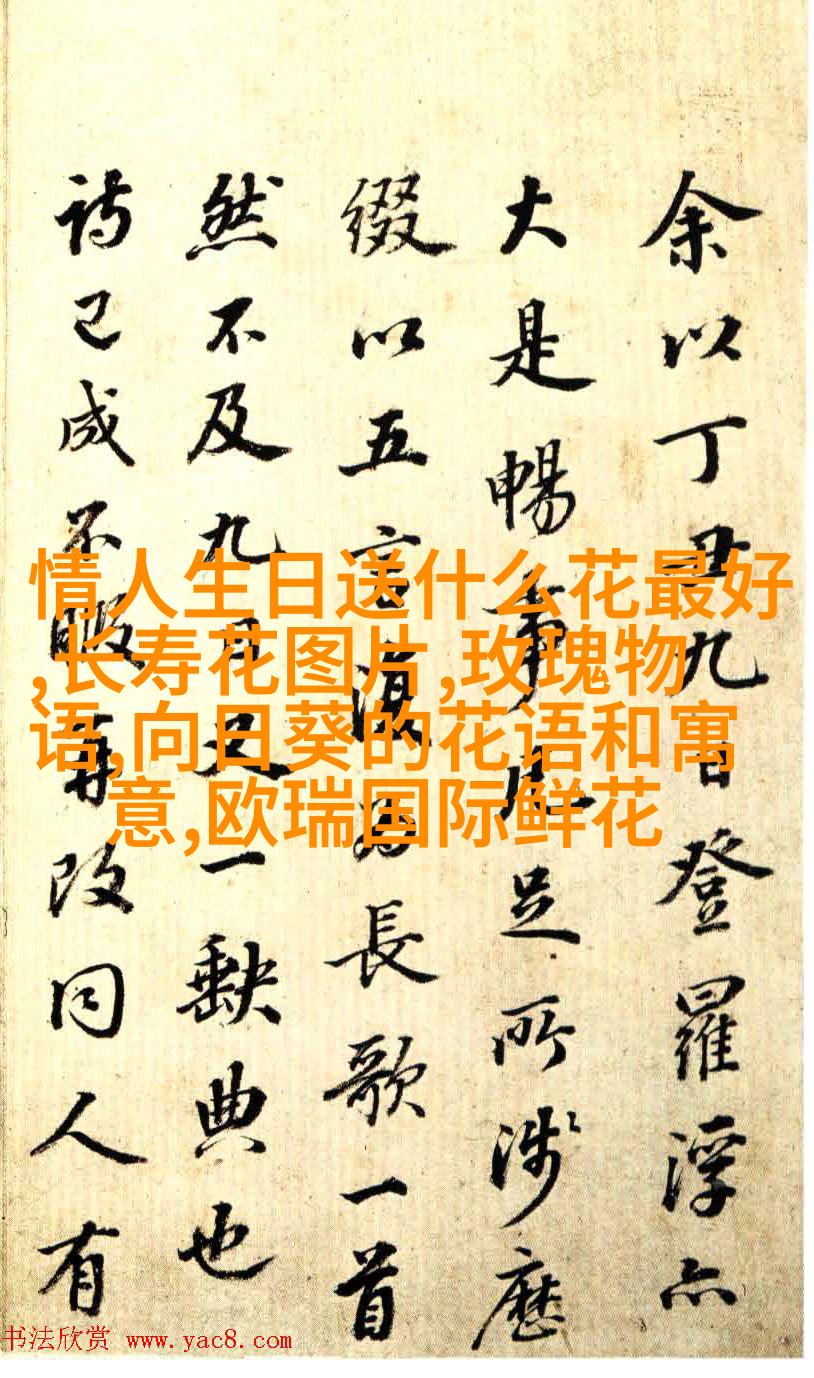 余以丁丑九日登羅浮亦
大是暢事凡足所涉歷
綴以五言為長歌一首
然不及九又一缺典也
詩已成不暇再改同人有
情人生日送什么花最好
,长寿花图片,玫瑰物
语,向日葵的花语和寓
意,欧瑞国际鲜花
书法欣赏 www.yac8.com